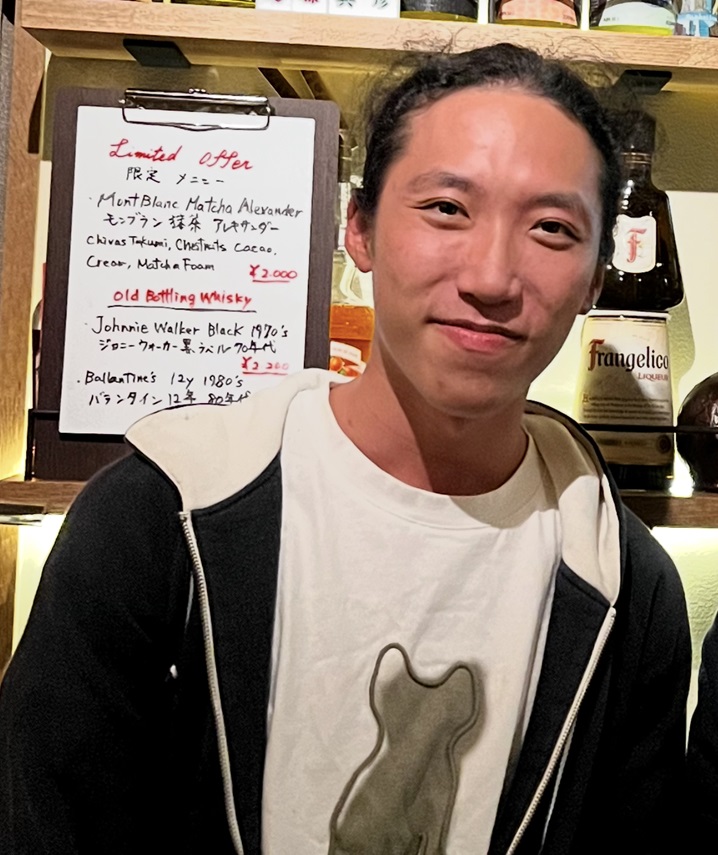 Limited Offer
限定 メニュー
・Mont Blanc Matcha Alexander
モンブラン 抹茶 アレキサンダー
Chivas Takumi, Chestnuts Cacao,
Cream, Matcha Foam
¥2.000
Old Bottling Whisky
・Johnnie Walker Black 1970's
ジョニーウォーカー黒ラベル 70年代
¥2.200
・Ballantine's 12y 1980's
バランタイン 12年 80年代
F
Frangelico
LIQUEUR